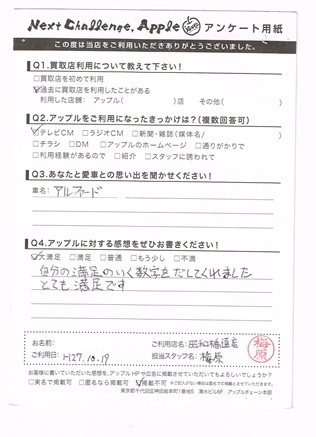 Next Challenge, Apple アンケート用紙
この度は当店をご利用いただきありがとうございました。
Q1.買取店利用について教えて下さい!
□買取店を初めて利用
☑過去に買取店を利用したことがある
利用した店舗: アップル( )店 その他( )
Q2.アップルをご利用になったきっかけは?(複数回答可)
☑テレビCM □ラジオCM □新聞・雑誌(媒体名/ )
□チラシ □DM □アップルのホームページ □通りがかりで
□利用経験があるので □紹介 □スタッフに誘われて
Q3.あなたと愛車との思い出を聞かせください!
車名: アルファード
Q4.アップルに対する感想をぜひお書きください!
☑大満足 □満足 □普通 □もう少し □不満
自分の満足のいく数字をだしてくれました
とても満足です
お名前: ご利用店名: 昭和橋通店
ご利用日: H27.10.19 担当スタッフ名: 梅原 梅原
お客様に書いていただいた感想を、アップルHPや広告に掲載させていただいてもよろしいでしょうか?
□実名で掲載可 □匿名なら掲載可 ☑掲載不可
東京都千代田区神田岩本町1番地5 清水ビル6F アップルチェーン本部